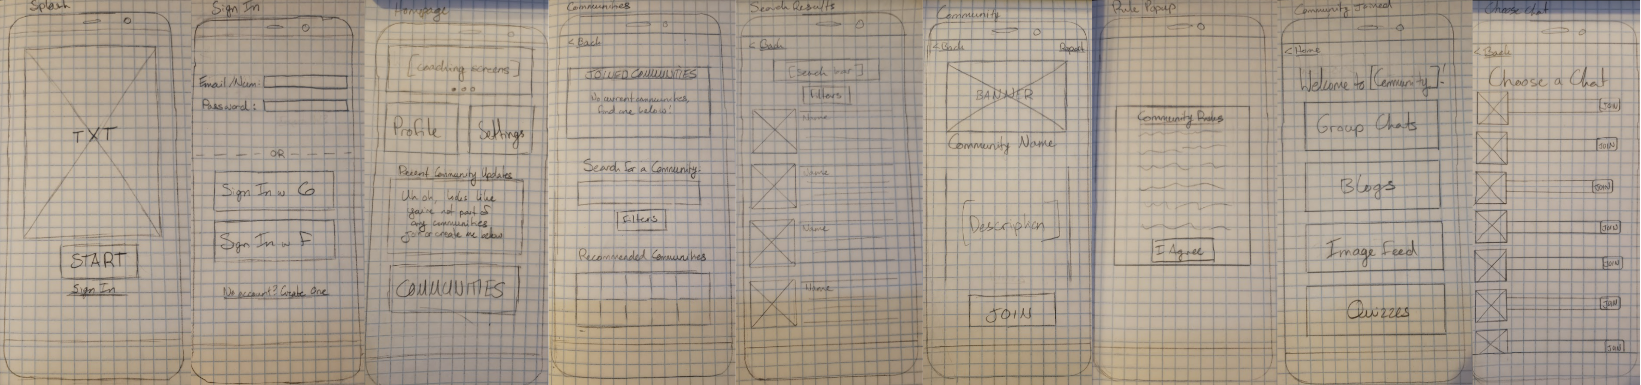 Splash
TXT
START
Sign In
Sign In
Email/Num:
Password:
OR
Sign In w G
Sign In w F
No account? Create One
Homepage
[coaching screens]
Profile
Settings
Recent Community Updates
Uh oh, looks like
you're not part of
any communities
Join or create one below
COMMUNITIES
Communities
< Back
JOINED COMMUNITIES
No current communities,
find one below!
Search for a Community:
Filters
Recommended Communities
Search Results
< Back
[Search bar]
Filters
Name
Name
Name
Name
Community
< Back
Report
BANNER
Community Name
[Description]
JOIN
Rule Popup
Community Rules
I Agree
Community Joined
< Home
Welcome to [Community]!
Group Chats
Blogs
Image Feed
Quizzes
Choose Chat
< Back
Choose a Chat
JOIN
JOIN
JOIN
JOIN
JOIN
JOIN
JOIN